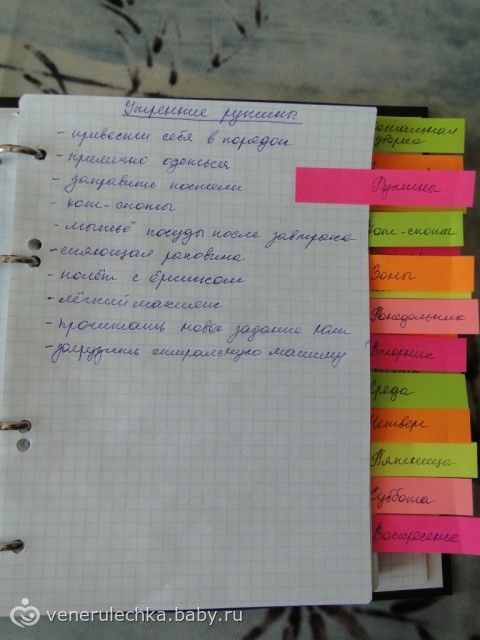 Утренние рутины
- привести себя в порядок
- прилично одеться
- заправить постели
- хот-споты
- мытьё посуды после завтрака
- сияющая раковина
- полёт с ёршиком
- лёгкий макияж
- прочитать новое задание
- загрузить стиральную машину
уборка
Рутины
хот-споты
Зоны
Понедельник
Вторник
Среда
Четверг
Пятница
Суббота
Воскресенье
venerulechka.baby.ru